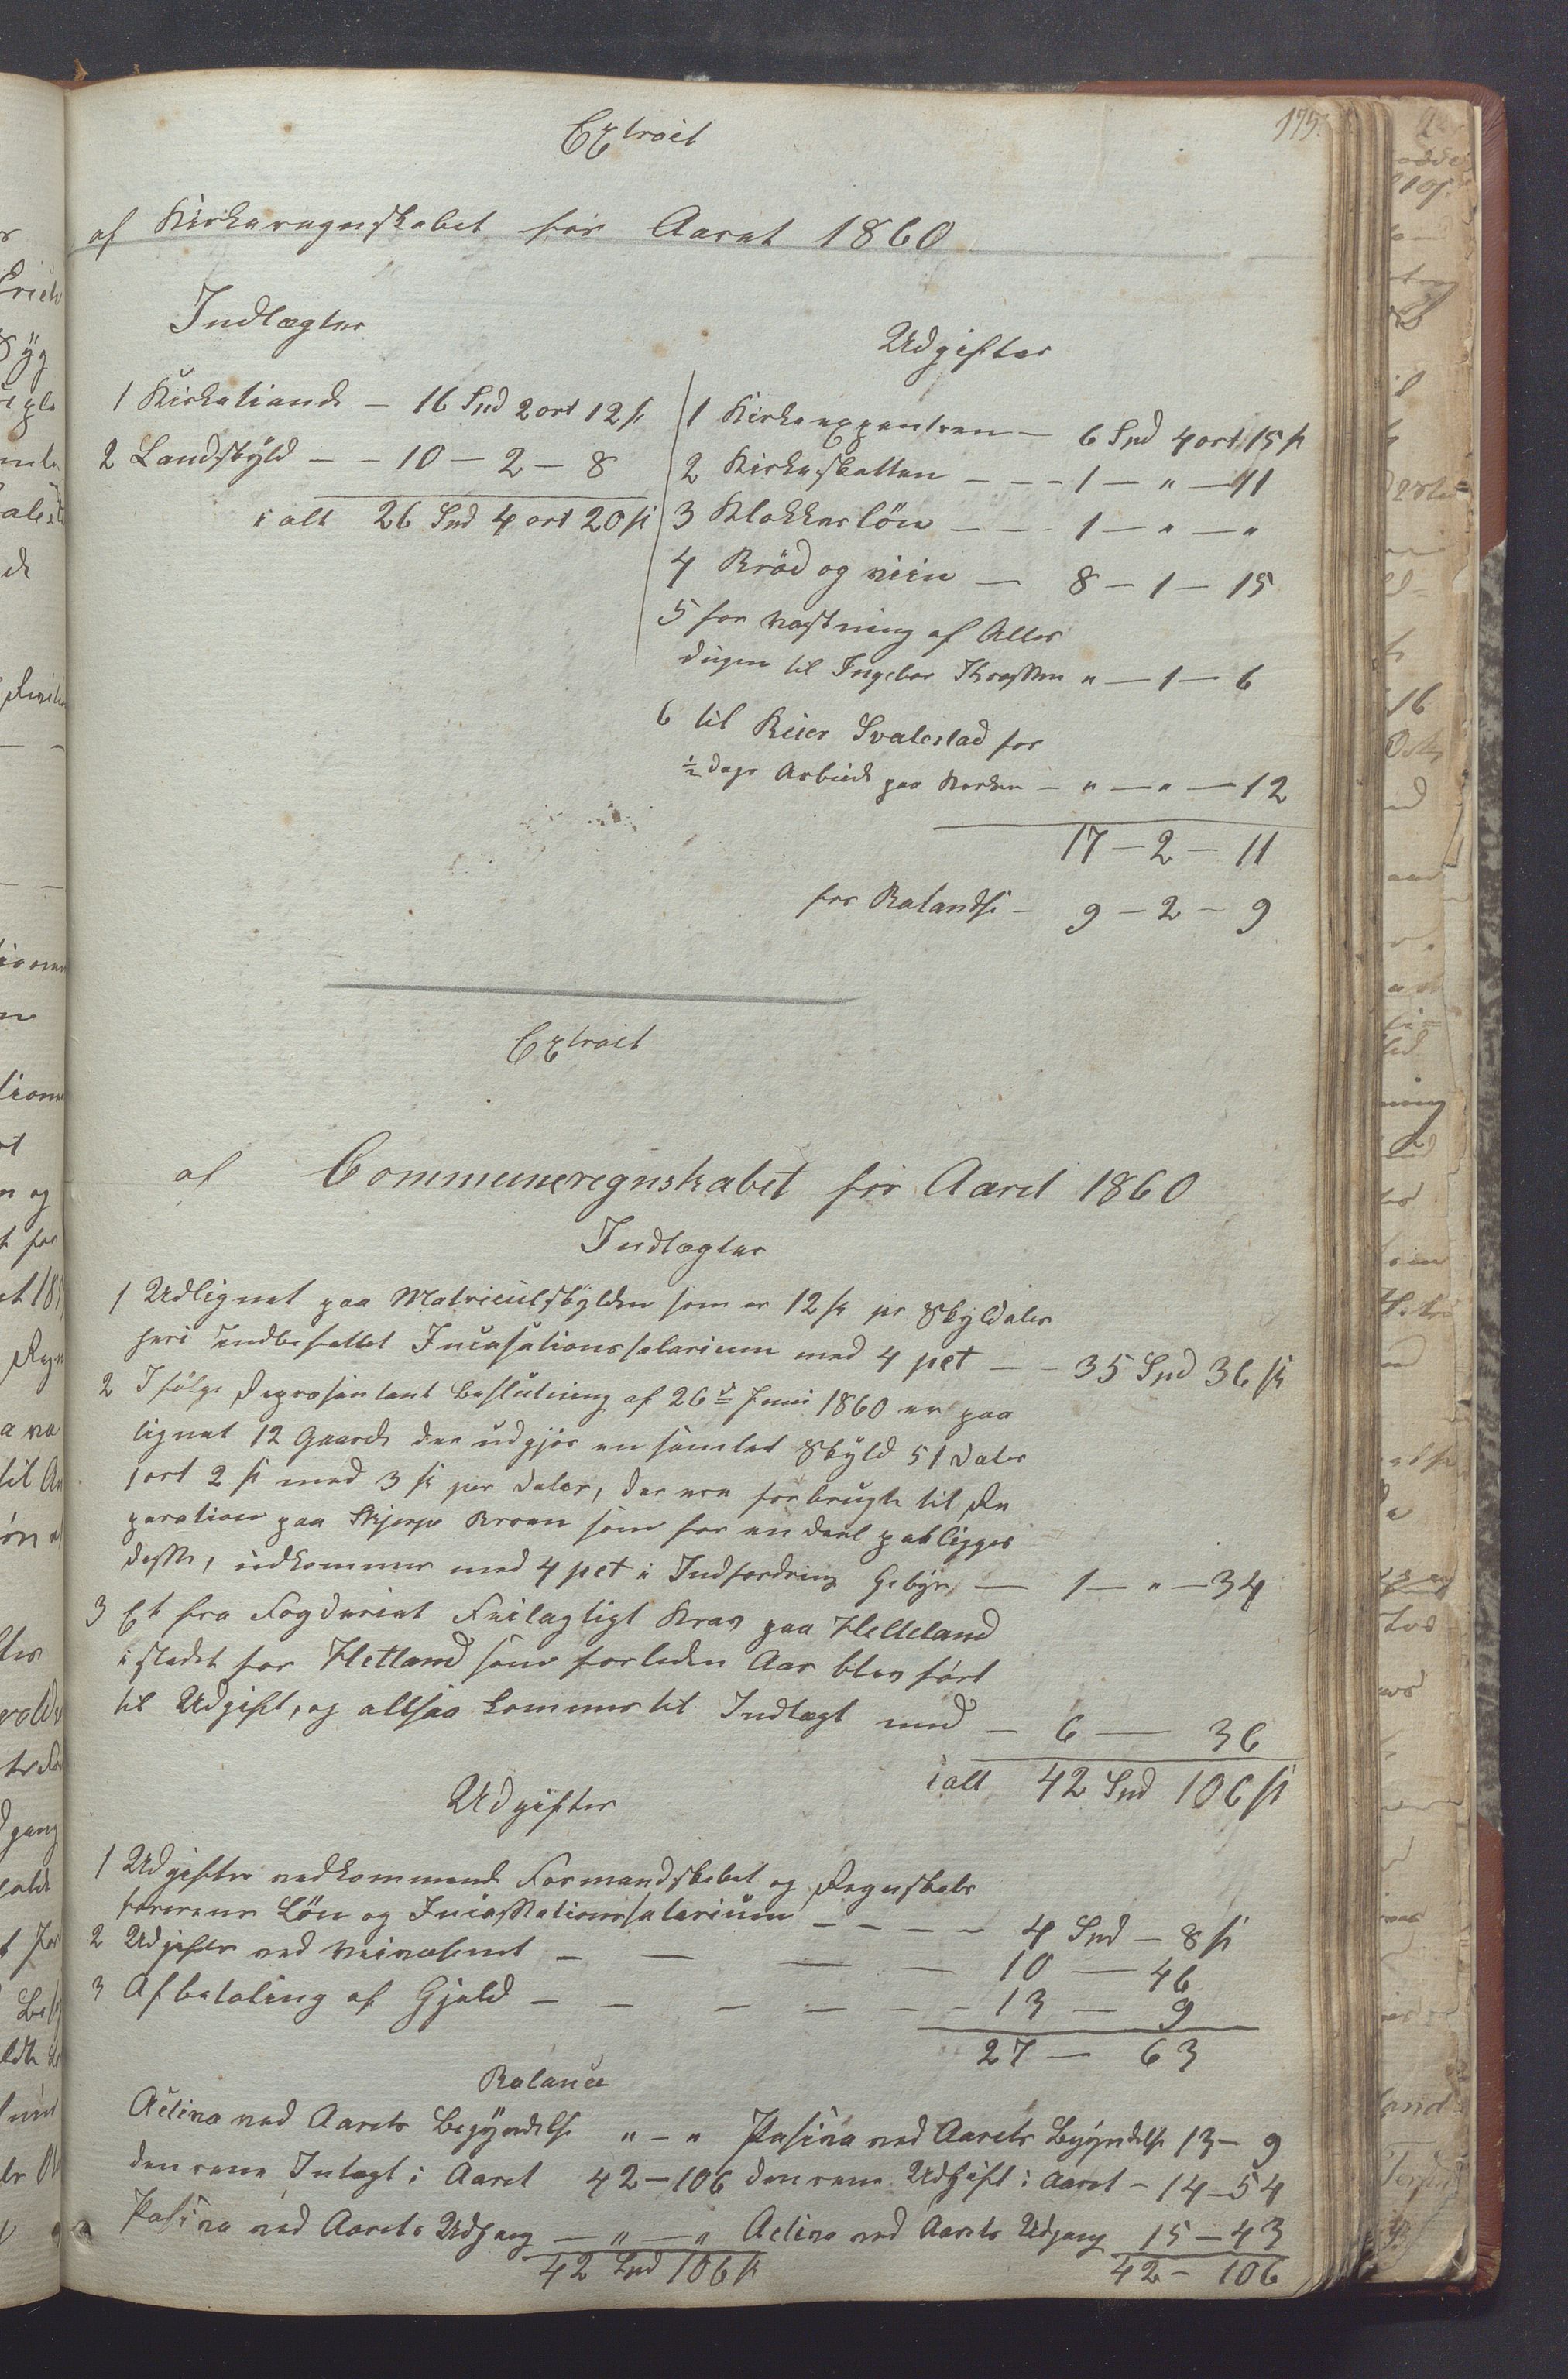 175.
Extrait
af Kirkeregnskabet for Aaret 1860
Indtægter
1 Kirketiende — 16 Spd 2 ort 12 ß
2 Landskyld — — 10 — 2 — 8
i alt 26 Spd 4 ort 20 ß
Udgifter
1 Kirkeexpentsen — 6 Spd 4 ort 15 ß
2 Kirkeskatten — — — 1 — " — 11
3 Klokkerløn — — — 1 — " — "
4 Brød og viin — 8 — 1 — 15
5 for vaskning af Alter
dugen til Ingebor " — 1 — 6
6 til Reier Svalestad for
½ dags Arbeide paa Kirken — " — " — 12
17 — 2 — 11
for Balandse — 9 — 2 — 9
Extrait
af Communeregnskabet for Aaret 1860
Indtægter
1 Udlignet paa Matriculskylden som er 12 ß pr Skylddaler
heri indbefattet Incasationssalarium med 4 pct — — 35 Spd 36 ß
2 Ifølge Repræsentant Beslutning af 26de Juni 1860 er paa
lignet 12 Gaarde der udgjør en samlet Skyld 51 daler
1 ort 2 ß med 3 ß per daler, der ere forbrugte til Re
paration paa Broen som for en deel paaligger
disse, udkommer med 4 pct i Indfordring Gebyr — 1 — " — 34
3 Et fra Fogderiet Feilagtigt Krav paa Helleland
i stedet for Hetland som forleden Aar blev ført
til Udgift, og altsaa kommer til Indtægt med — 6 — 36
i alt 42 Spd 106 ß
Udgifter
1 Udgifter vedkommende Formandskabet og Regnskabs
førerens Løn og Incassationssalarium — — — — 4 Spd — 8 ß
2 Udgifter ved Veivæsenet — — — — 10 — 46
3 Afbetaling af Gjeld — — — — — — 13 — 9
27 — 63
Balance
Activa ved Aarets Begyndelse " — " Passiva ved Aarets Begyndelse 13 — 9
den rene Intægt i Aaret 42 — 106 den rene Udgift i Aaret — 14 — 54
Pasiva ved Aarets Udgang — " — " Activa ved Aarets Udgang 15 — 43
42 Spd 106 ß 42 — 106